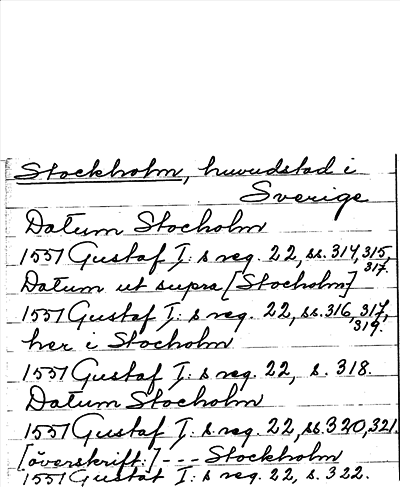 Stockholm, huvudstad i
Sverige
Datum Stocholm
1551 Gustaf I: s reg. 22, ss. 314, 315,
317.
Datum ut supra [Stocholm]
1551 Gustaf I: s reg. 22, ss. 316, 317,
319.
her i Stocholm
1551 Gustaf I: s reg. 22, s. 318.
Datum Stocholm
1551 Gustaf I: s. reg. 22, ss. 320, 321.
[överskrift:] --- Stockholm
1551 Gustaf I: s reg. 22, s. 322.